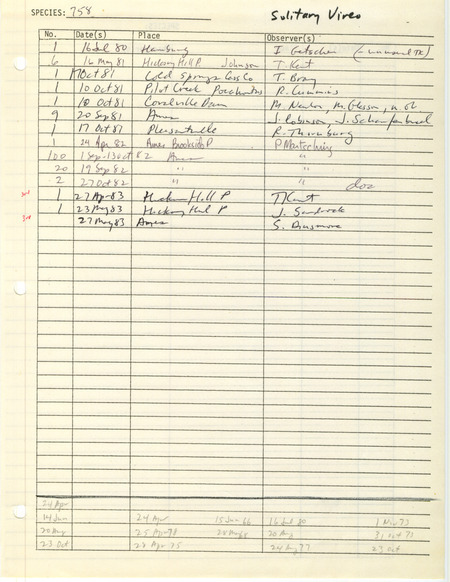 SPECIES: 758 Solitary Vireo
No. Date(s) Place Observer(s)
1 16 Jul 80 Hamburg I Getscher (-unusual TK)
6 16 May 81 Hickory Hill P Johnson T. Kent
1 17 Oct 81 Cold Springs Cass Co T. Bray
1 10 Oct 81 Pilot Creek Pocahontas R. Cummins
1 18 Oct 81 Coralville Dam M. Newlon, M. Gleason,
9 20 Sep 81 Ames J. Robinson, J. Schaufenbuel
1 17 Oct 81 Pleasantville R. Thornburg
1 24 Apr 82 Ames Brookside P P Martsching
100 1 Sep-13 Oct 82 Ames "
20 19 Sep 82 " "
2 27 Oct 82 " " doc
1 27 Apr 83 Hickory Hill P T Kent
1 23 May 83 Hickory Hill P J. Sandrock
27 May 83 Ames S. Dinsmore
24 Apr
14 Jun 24 Apr 15 Jun 66 16 Jul 80 1 Nov 73
20 Aug 25 Apr 78 20 Aug 31 Oct 71
23 Oct 28 Apr 75 24 Aug 77 29 Oct